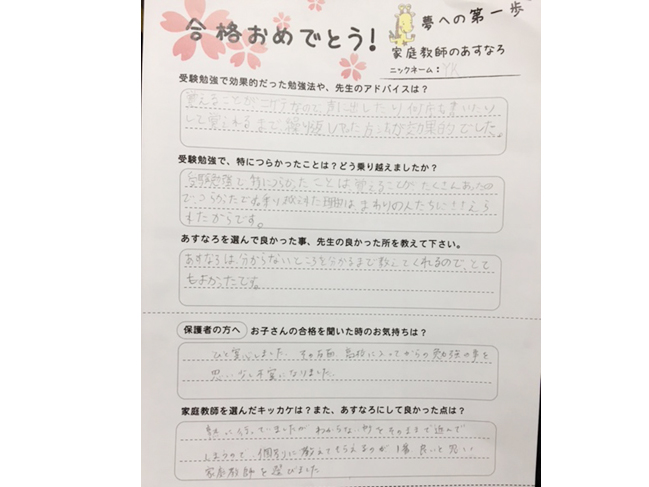 合格おめでとう！
夢への第一歩
家庭教師のあすなろ
ニックネーム：YK
受験勉強で効果的だった勉強法や、先生のアドバイスは？
覚えることがニガテなので、声に出したり何度も書いたり
して覚えれるまで繰り返しやった方法が効果的でした。
受験勉強で、特につらかったことは？どう乗り越えましたか？
受験勉強で特につらかったことは、覚えることがたくさんあったの
でつらかったです。乗り越えれた理由は、まわりの人たちにささえら
れたからです。
あすなろを選んで良かった事、先生の良かった所を教えて下さい。
あすなろは、分からないところを分かるまで教えてくれるので、とて
もよかったです。
保護者の方へ お子さんの合格を聞いた時のお気持ちは？
ひと安心しました。その反面、高校に入ってからの勉強の事を
思い少し不安になりました。
家庭教師を選んだキッカケは？また、あすなろにして良かった点は？
塾に行っていましたが わからない所をそのままで進んで
しまうので、個別に教えてもらえるのが1番良いと思い
家庭教師を選びました